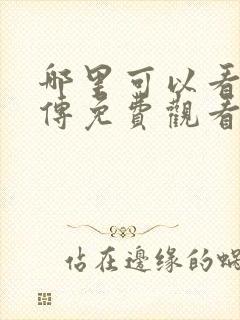 哪里可以看
傳免費觀看
估在邊缘的蝸